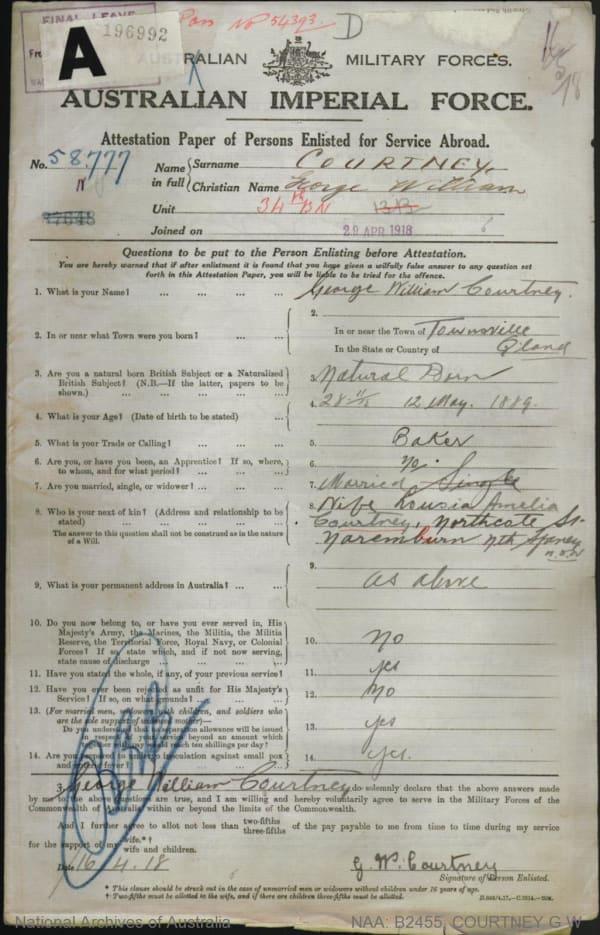 FINAL LEAVE
196992
Pass No 54393
D
A
AUSTRALIAN MILITARY FORCES.
AUSTRALIAN IMPERIAL FORCE.
Attestation Paper of Persons Enlisted for Service Abroad.
No. 58777
N
Name in full
Surname COURTNEY.
Christian Name George William
Unit 34th BN
Joined on 29 APR 1918
Questions to be put to the Person Enlisting before Attestation.
You are hereby warned that if after enlistment it is found that you have given a wilfully false answer to any question set
forth in this Attestation Paper, you will be liable to be tried for the offence.
1. What is your Name? ... ... ... ... George William Courtney.
2. In or near what Town were you born? ... ... 2. In or near the Town of Townsville
In the State or Country of Q'land
3. Are you a natural born British Subject or a Naturalized
British Subject? (N.B.—If the latter, papers to be
shown.) ... ... ... ... 3. Natural Born
4. What is your Age? (Date of birth to be stated) ... 4. 28 11/12 12 May. 1889.
5. What is your Trade or Calling? ... ... ... 5. Baker
6. Are you, or have you been, an Apprentice? If so, where,
to whom, and for what period? ... ... ... 6. no.
7. Are you married, single, or widower? ... ... ... 7. Married Single
8. Who is your next of kin? (Address and relationship to be
stated) ... ... ... ...
The answer to this question shall not be construed as in the nature
of a Will.
8. Wife Lousia Amelia
Courtney, Northcote St.
Naremburn Nth Sydney
N.S.W
9. What is your permanent address in Australia? ... ... 9. as above
10. Do you now belong to, or have you ever served in, His
Majesty's Army, the Marines, the Militia, the Militia
Reserve, the Territorial Force, Royal Navy, or Colonial
Forces? If so, state which, and if not now serving,
state cause of discharge ... ... ... 10. No
11. Have you stated the whole, if any, of your previous service? 11. yes
12. Have you ever been rejected as unfit for His Majesty's
Service? If so, on what grounds? ... ... 12. No
13. (For married men, widowers with children, and soldiers who
are the sole support of widowed mother)—
Do you understand that no separation allowance will be issued
in respect of your service beyond an amount which
together with pay would reach ten shillings per day? 13. yes
14. Are you prepared to undergo inoculation against small pox
and enteric fever? ... ... ... 14. yes.
I, George William Courtney do solemnly declare that the above answers made
by me to the above questions are true, and I am willing and hereby voluntarily agree to serve in the Military Forces of the
Commonwealth of Australia within or beyond the limits of the Commonwealth.
And I further agree to allot not less than two-fifths
three-fifths of the pay payable to me from time to time during my service
for the support of my wife.*†
wife and children.
Date 16.4.18
G. W. Courtney
Signature of Person Enlisted.
* This clause should be struck out in the case of unmarried men or widowers without children under 16 years of age.
† Two-fifths must be allotted to the wife, and if there are children three-fifths must be allotted.
National Archives of Australia
NAA: B2455, COURTNEY G W